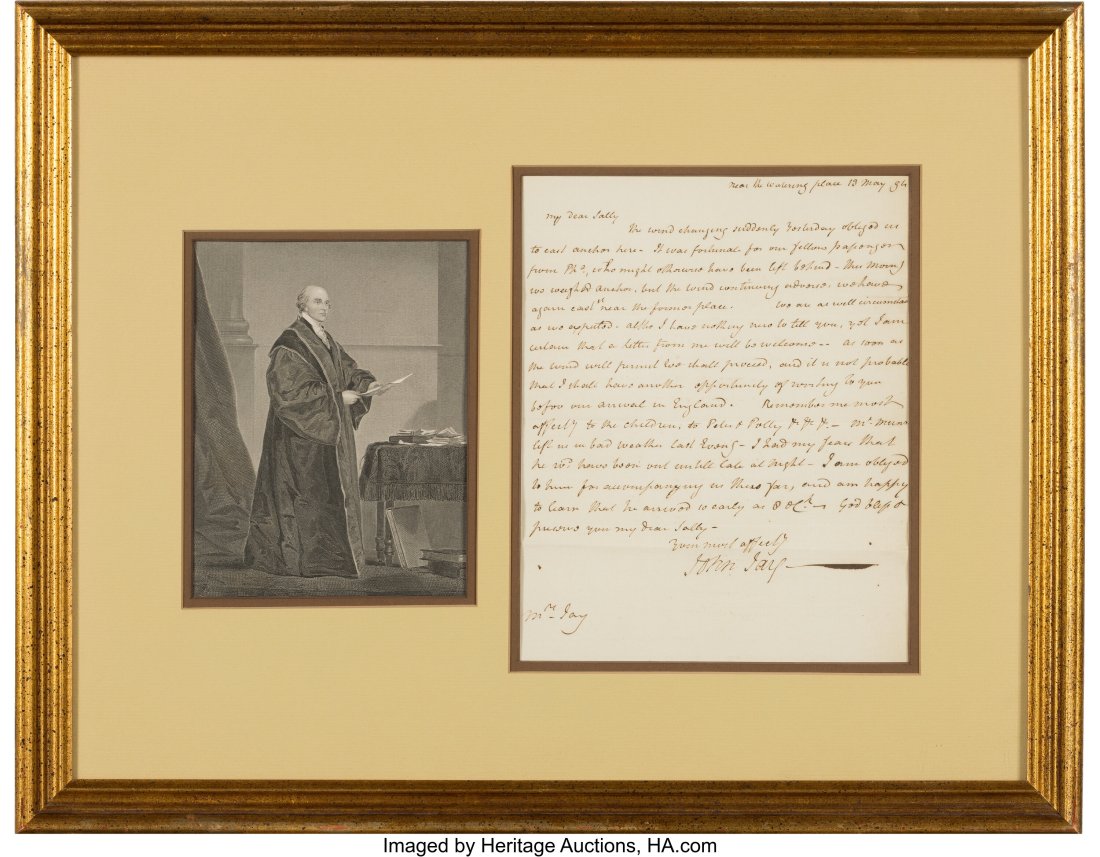 near the watering place 13 May 94
my dear Sally
The wind changing suddenly Yesterday obliged us
to cast anchor here - It was fortunate for our fellow passengers
from Pha, who might otherwise have been left behind - This Morng
we weighed anchor, but the wind continuing adverse, we have
again cast near the former place. we are as well circumstanced
as we expected. altho I have nothing new to tell you, yet I am
certain that a Letter from me will be welcome -- as soon as
the wind will permit we shall proceed, and it is not probable
that I shall have another opportunity of writing to you
before our arrival in England. Remember me most
affecty to the children, to Peter & Polly &c &c &c - Mr.
left us in bad weather last Eveng - I had my fears that
he wd. have been out untill late at Night - I am obliged
to him for accompanying us thus far, and am happy
to learn that he arrived so early as 8 oClk - God bless &
preserve you my dear Sally -
Your most affecty
John Jay
Mrs. Jay
Imaged by Heritage Auctions, HA.com